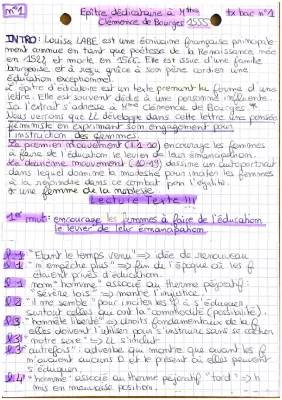 n°1 Epître dédicatoire à Mme tx bac n°1
Clémence de Bourges 1555
INTRO: Louise LABÉ est une écrivaine française principale
ment connue en tant que poétesse de la Renaissance, née
en 1524 et morte en 1566. Elle est issue d'une famille
bourgeoise et a reçu grâce à son père cordier une
éducation exceptionnel.
L'épître dédicatoire est un texte prenant la forme d'une
lettre. Elle est souvent dédié à une personne influente.
Ici l'extrait s'adresse à Mme Clémence de Bourges
Nous verrons que LL développe dans cette lettre une pensée
féministe en exprimant son engagement pour
l'instruction des femmes.
Le premier mouvement (l.1-10) encourage les femmes
à faire de l'éducation le levier de leur émancipation.
Le deuxième mouvement (l.10-19) dessine un autoportrait
dans lequel domine la modestie, pour inciter les femmes
à la rejoindre dans ce combat pour l'égalité.
une femme de la modestie
Lecture Texte !!!
1er mvt: encourage les femmes à faire de l'éducation
le levier de leur émancipation.
l.1 "Etant le temps venu" => idée de renouveau
l.1 "n'empêche plus" => fin de l'époque où les f
étaient privés d'éducation.
l.1 nom "homme" associé au thème péjoratif
"sévère lois" => montre l'injustice.
l.2 "il me semble" pour inciter les f à s'éduquer
surtout celles qui ont la "commodité" (possibilité).
l.3 "honnête liberté" => droits fondamentaux de la f
elles doivent l'utiliser pour s'instruire sans se cacher
l.3 "notre sexe" => LL s'inclut
l.3 "autrefois": adverbe qui montre que avant les f
n'avaient aucuns D et le présent où elles peuvent
s'éduquer.
l.4 "homme" associé au thème péjoratif "tord" => h
mis en mauvaise position.